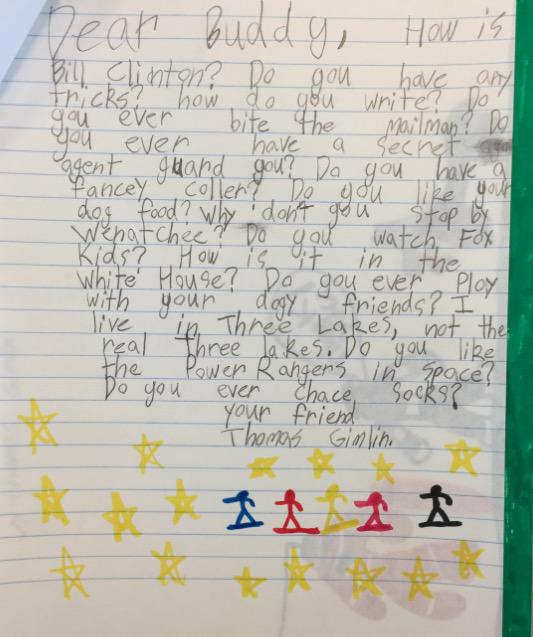 Dear Buddy, How is
Bill Clinton? Do you have any
tricks? how do you write? Do
you ever bite the mailman? Do
you ever have a secret
agent guard you? Do you have a
fancey coller? Do you like your
dog food? Why don't you stop by
Wenatchee? Do you watch Fox
Kids? How is it in the
White House? Do you ever Play
with your dogy friends? I
live in Three Lakes, not the
real Three lakes. Do you like
the Power Rangers in Space?
Do you ever chace socks?
your friend
Thomas Gimlin.